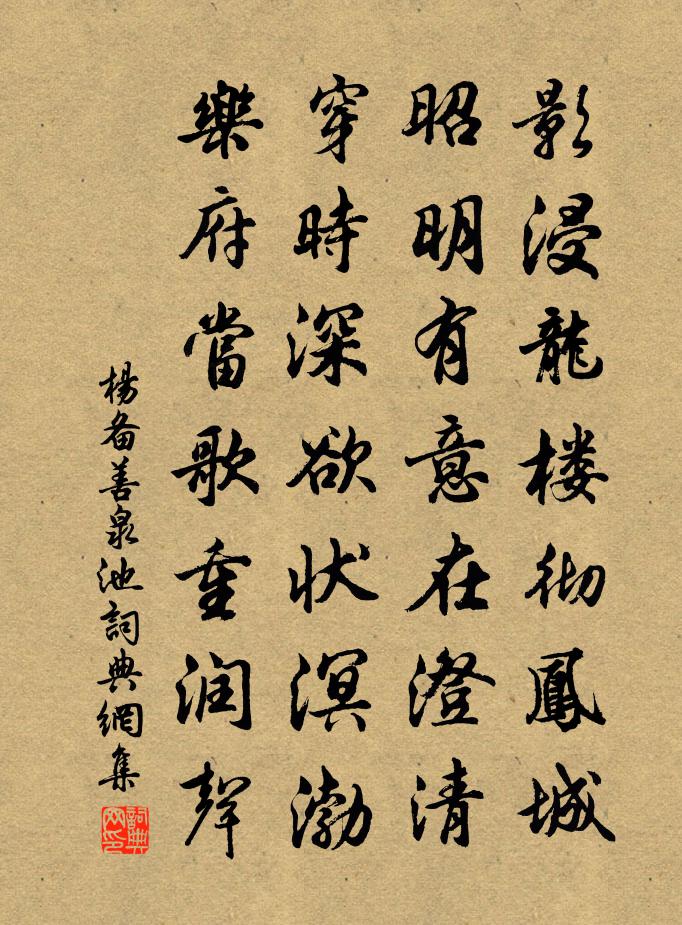 影浸龍楼彻鳳城
昭明有意在澄清
穿時深欲状溟渤
樂府當歌重润聲
楊备善泉池詞典網集
詞典网印